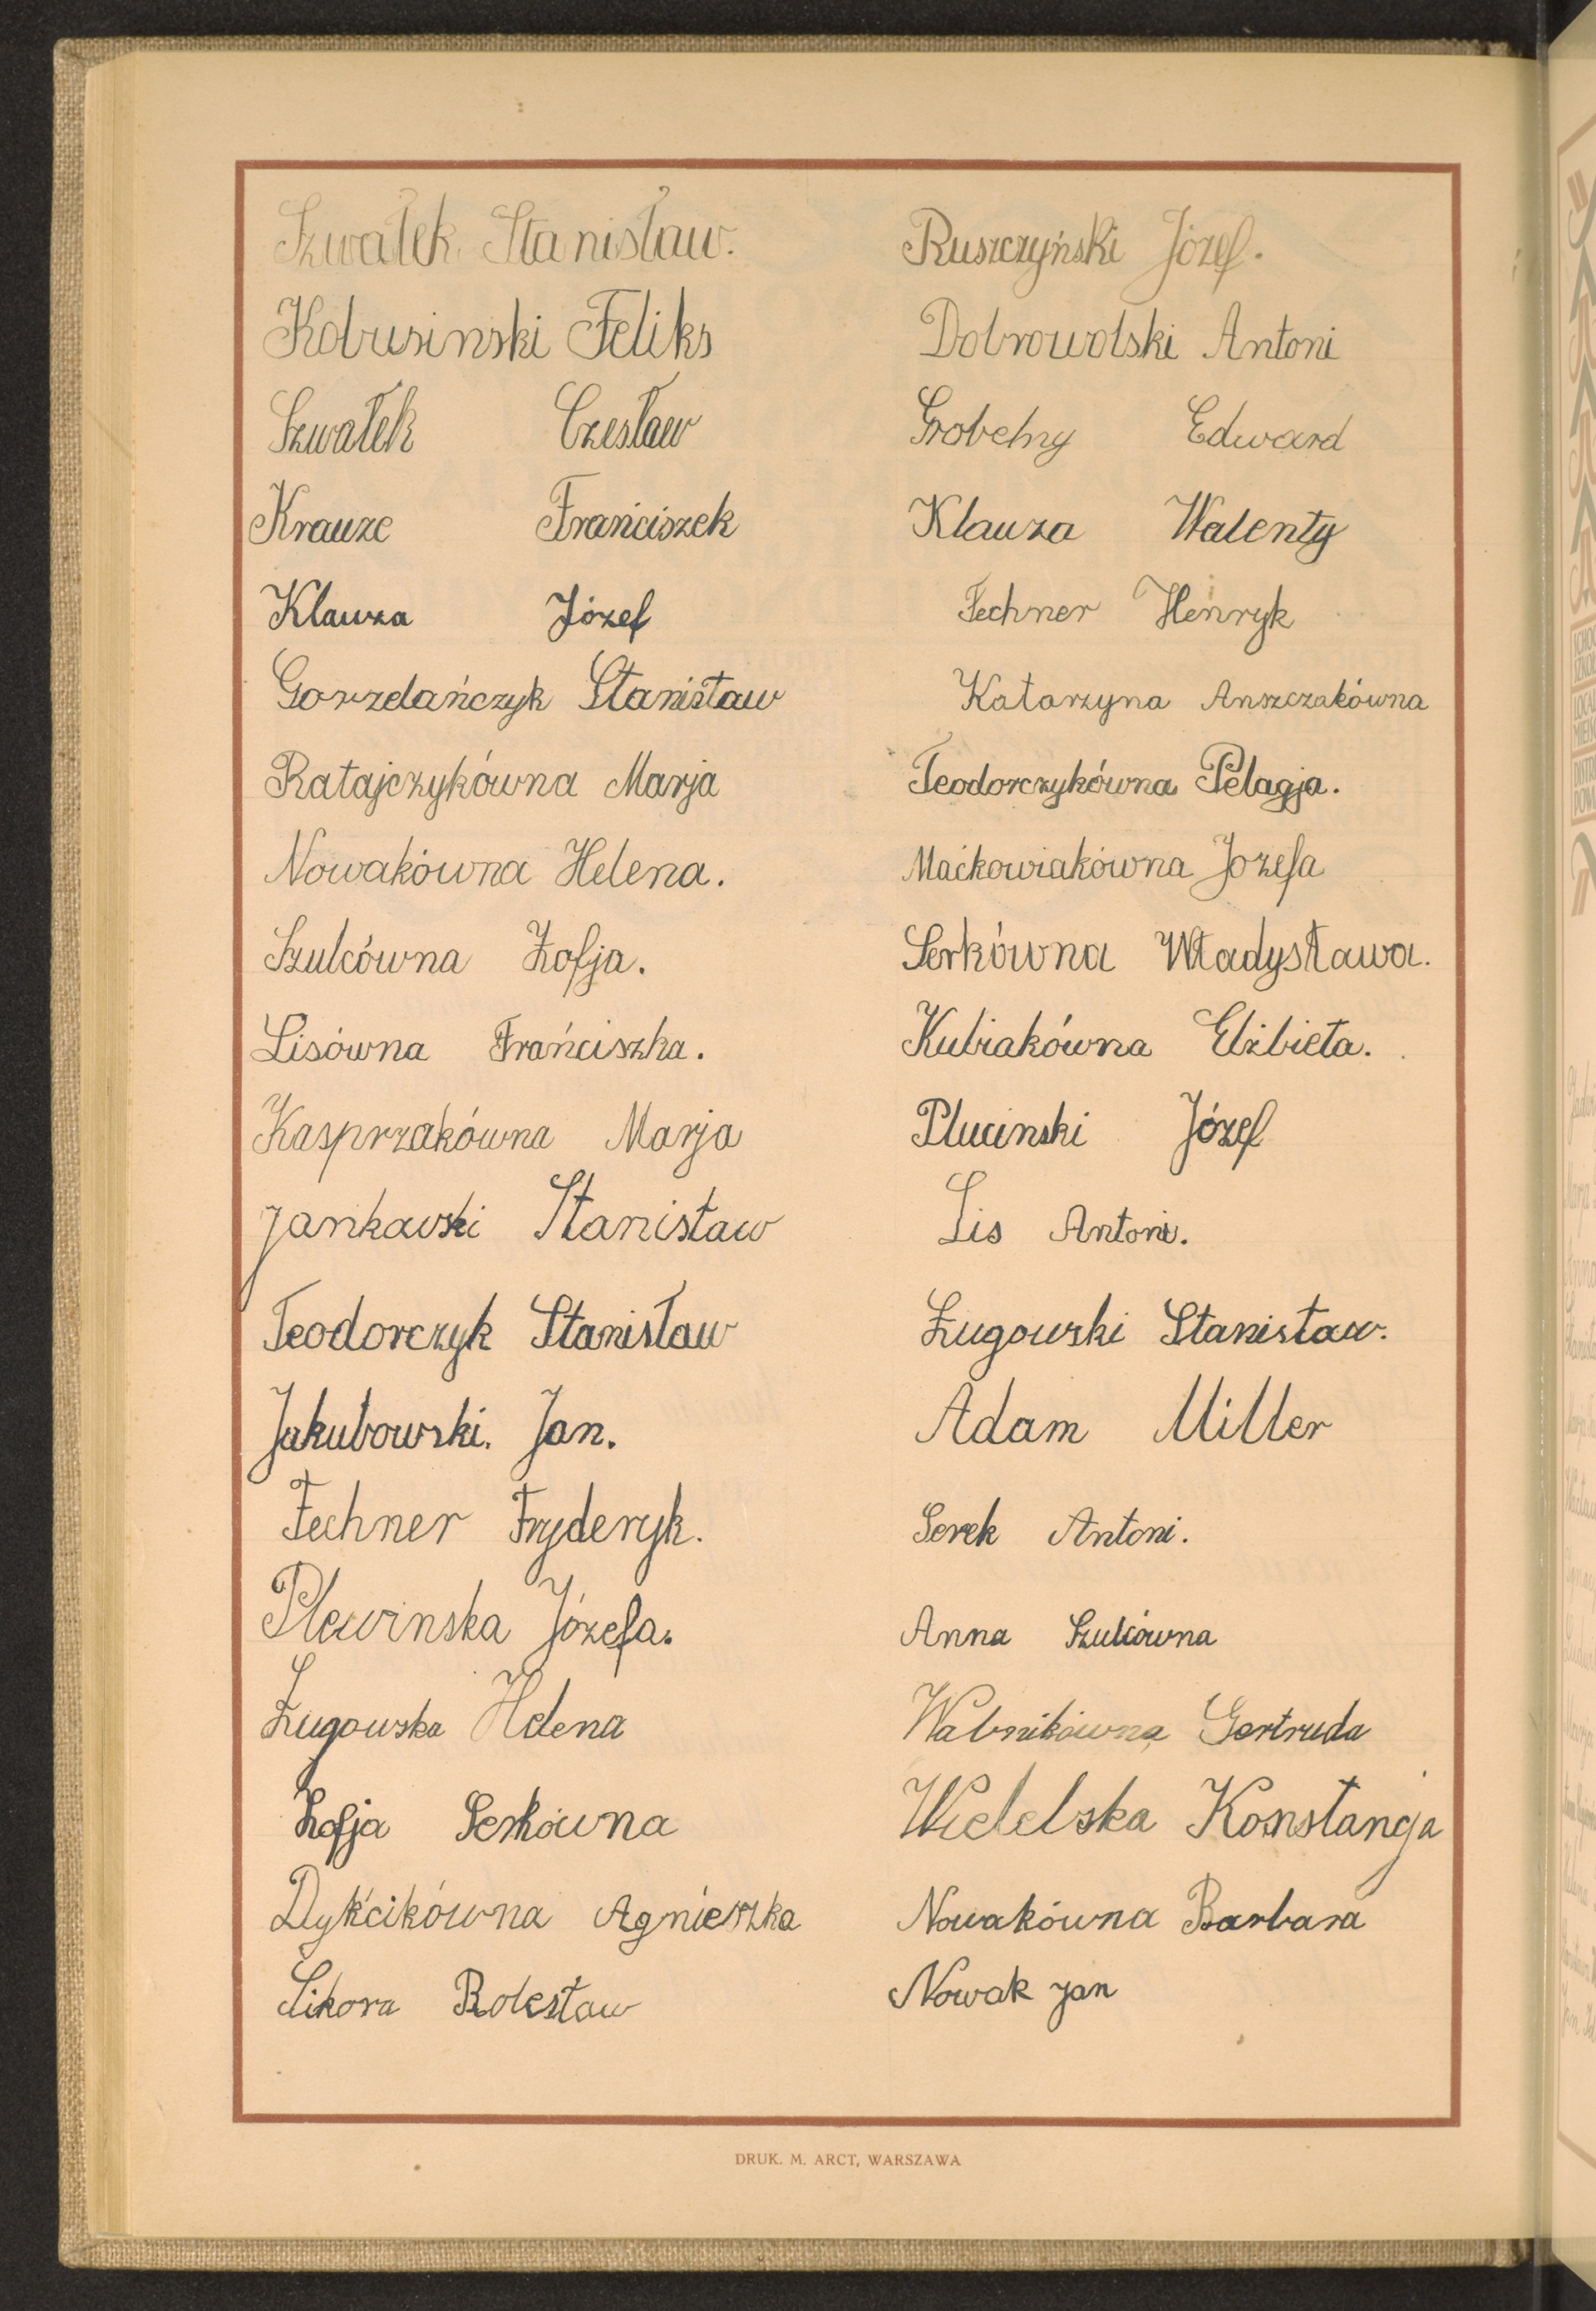 Szwałek Stanisław.
Kobusinski Feliks
Szwałek Czesław
Krauze Frańciszek
Klauza Józef
Gorzelańczyk Stanisław
Ratajczykówna Marja
Nowakówna Helena.
Szulcówna Zofja.
Lisówna Frańciszka.
Kasprzakówna Marja
Jankowski Stanisław
Teodorczyk Stanisław
Jakubowski. Jan.
Fechner Fryderyk.
Plewinska Józefa.
Ługowska Helena
Zofja Serkówna
Dykcikówna Agnieszka
Sikora Bolesław
Ruszczyński Józef.
Dobrowolski Antoni
Grobelny Edward
Klauza Walenty
Fechner Henryk
Katarzyna Anszczakówna
Teodorczykówna Pelagja.
Maćkowiakówna Jozefa
Serkówna Władysława.
Kubiakówna Elżbieta.
Plucinski Józef
Lis Antoni.
Ługowski Stanisław.
Adam Miller
Serek Antoni.
Anna Szulcówna
Walnikówna Gertruda
Wielelska Konstancja
Nowakówna Barbara
Nowak Jan
DRUK. M. ARCT, WARSZAWA